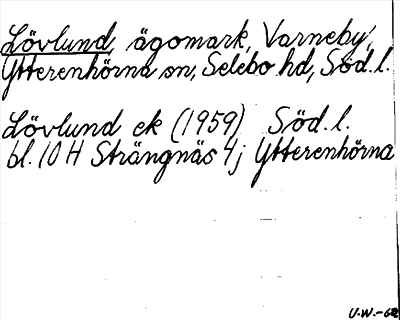 Lövlund, ägomark, Varneby,
Ytterenhörna sn, Selebo hd, Söd.l.
Lövlund ek (1959) Söd.l.
bl. 10 H Strängnäs 4j Ytterenhörna
U.W.-62